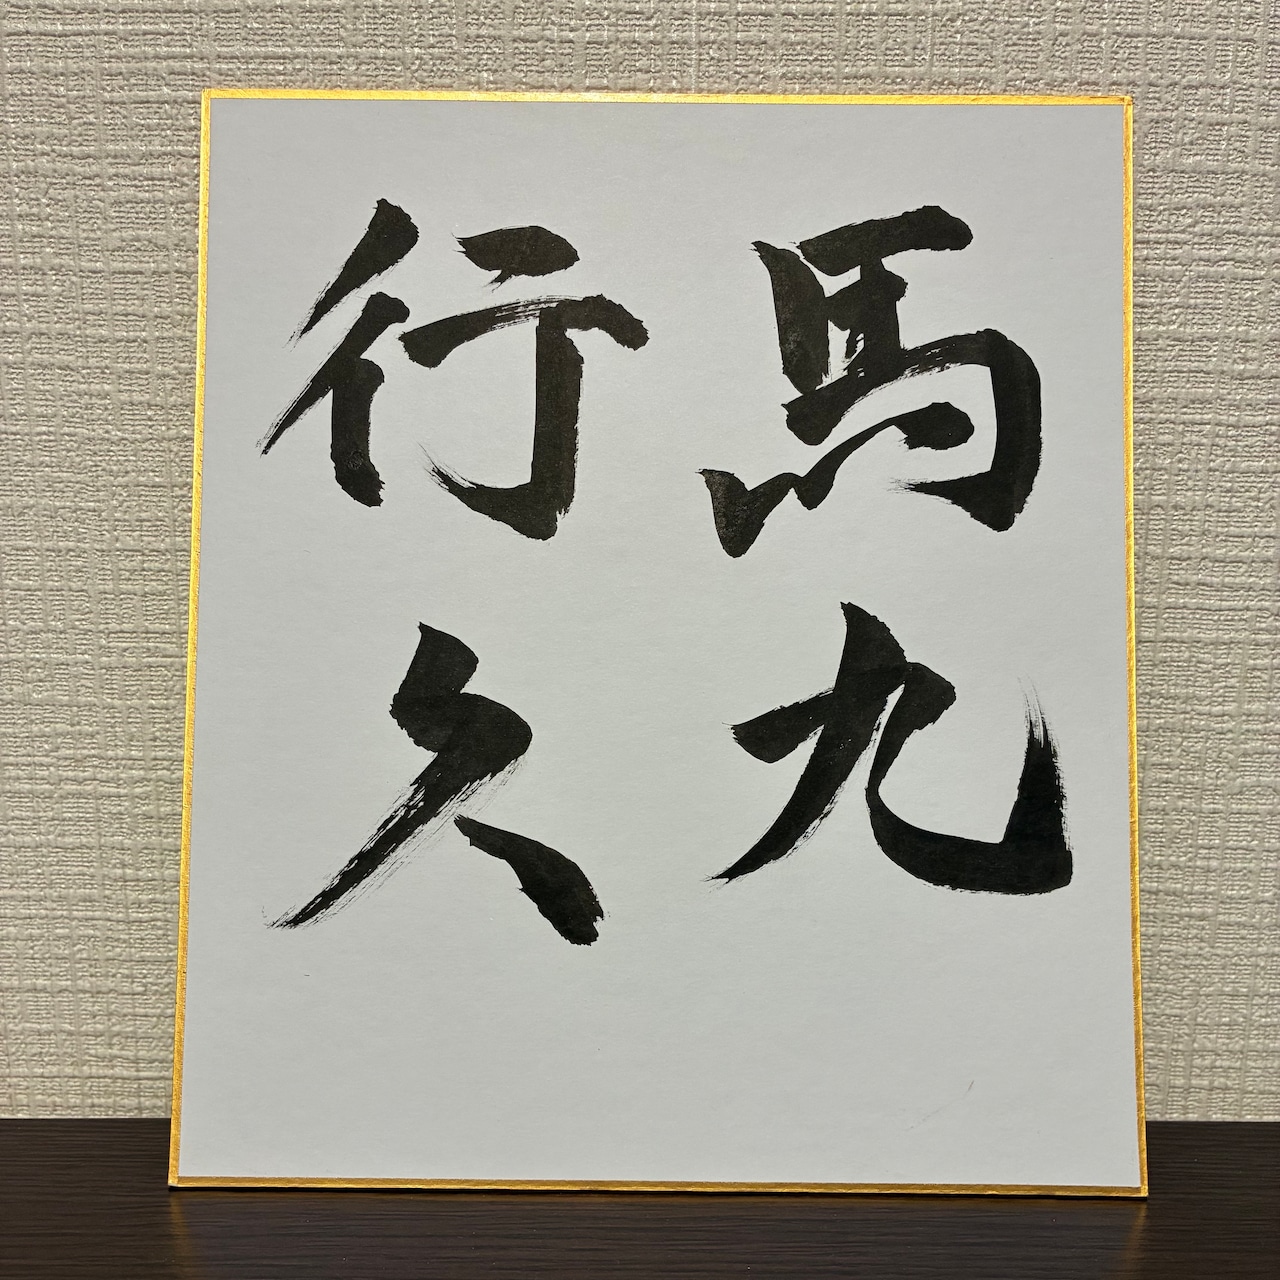 馬九
行久